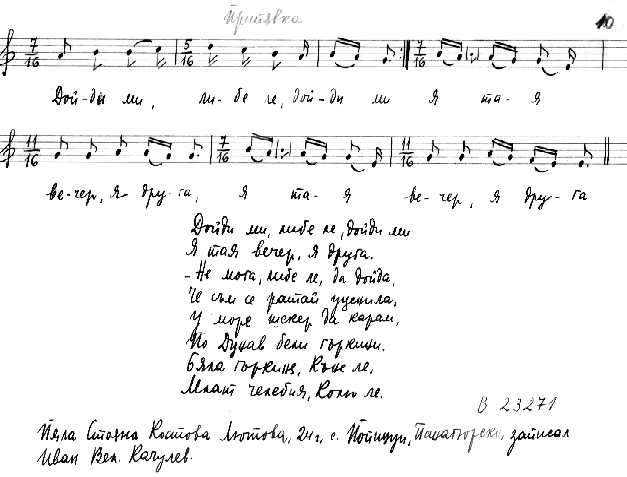 Припявка
10
7/16 5/16 7/16
Дой-ди ми, ли-бе ле, дой-ди ми я та-я
11/16 7/16 11/16
ве-чер, я дру-га, я та-я ве-чер, я дру-га
Дойди ми, либе ле, дойди ми
Я тая вечер, я друга.
- Не мога, либе ле, да дойда,
Че съм се ратай
У море шекер да карам,
По Дунав бели
Бяла Коне ле,
челебия, Колю ле.
В 23271
Пяла Стояна Костова Лютова, 24 г., с. Попинци, Панагюрско, записал
Иван Вел. Качулев.